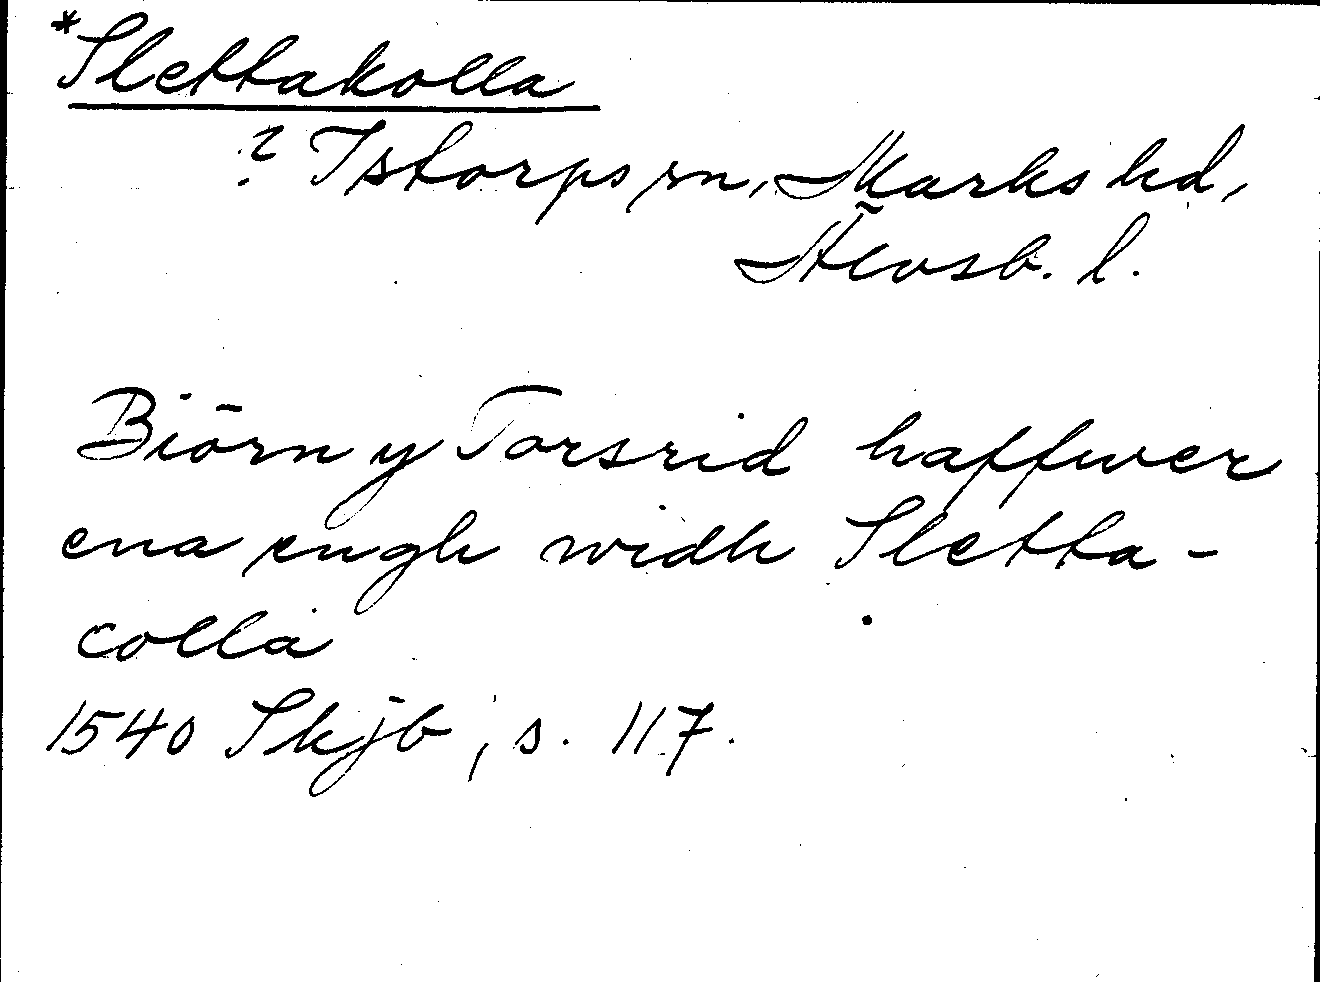 *Slettakolla
? Istorps sn, Marks hd,
Älvsb. l.
Biörn y Torsrid haffwer
ena engh widh Sletta-
colla
1540 Skjb, s. 117.